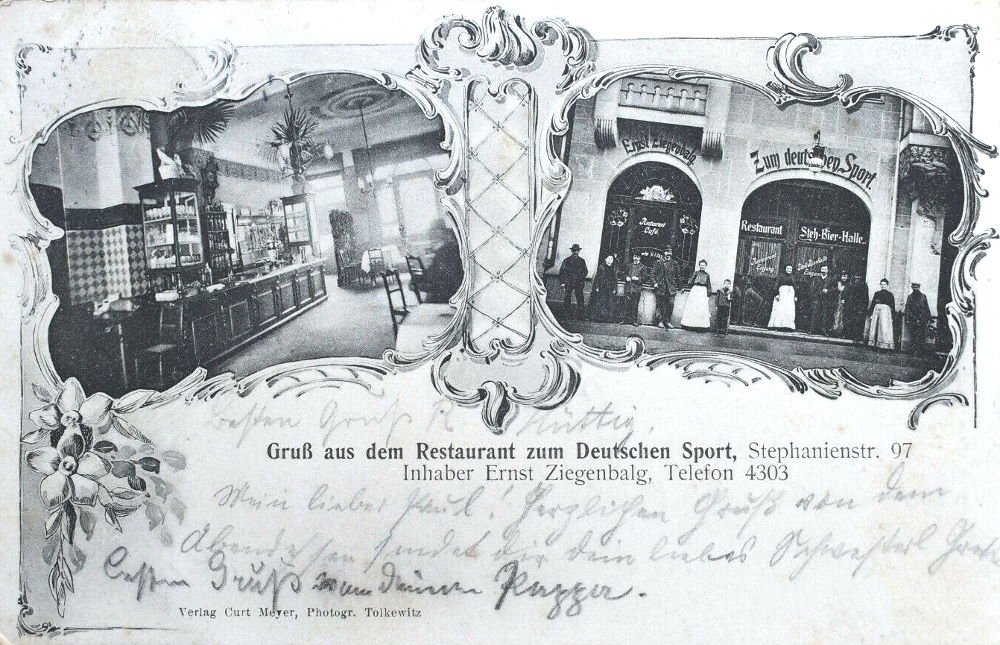 Ernst Ziegenbalg.
Zum deutschen Sport.
Restaurant
Café
Restaurant
Steh-Bier-Halle.
Besten Gruß R. Küttig.
Gruß aus dem Restaurant zum Deutschen Sport, Stephanienstr. 97
Inhaber Ernst Ziegenbalg, Telefon 4303
Mein lieber Paul! Herzlichen Gruß von dem
Abendessen sendet dir dein liebes Schwesterl Grete
Besten Gruß von deinem Pappa.
Verlag Curt Meyer, Photogr. Tolkewitz